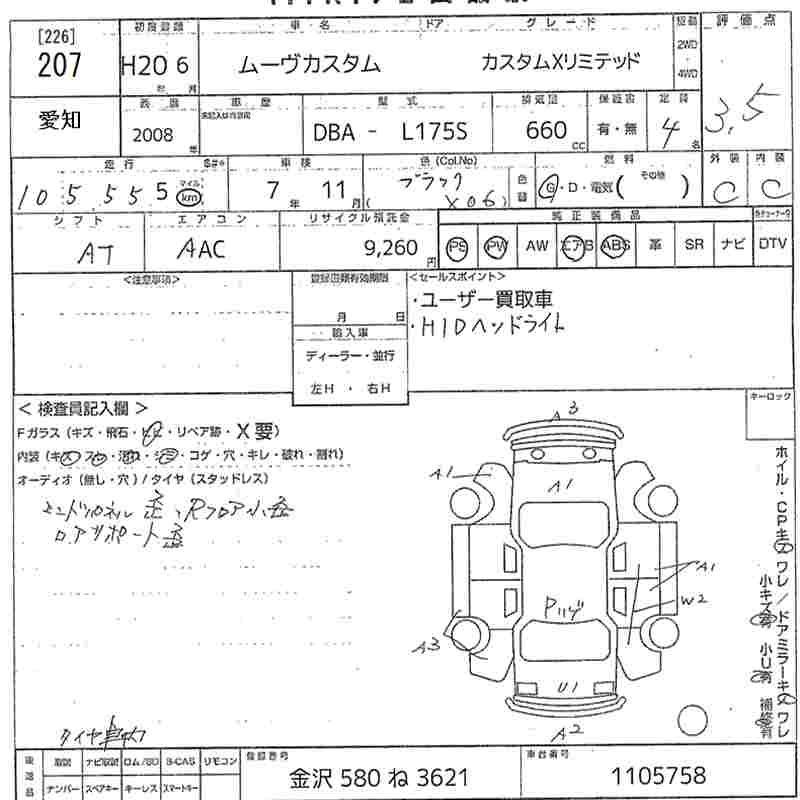 [226]
207
初度登録
車名
ドア
グレード
評価点
H20 6
ムーヴカスタム
カスタムXリミテッド
2WD
4WD
3.5
愛知
2008
車歴
型式
DBA - L175S
排気量
660 CC
保証書
有・無
定員
4 名
走行
105555
マイル
km
車検
7年 11月
色(Col.No)
ブラック
(X06)
色替
燃料
G・D・電気(その他)
外装
C
内装
C
シフト
AT
エアコン
AAC
リサイクル預託金
9,260 円
純正装備品
PS PW AW エアB ABS 革 SR ナビ DTV
<注意事項>
登録書類有効期限
月 日
輸入車
ディーラー・並行
左H ・ 右H
<セールスポイント>
・ユーザー買取車
・HIDヘッドライト
キーロック
< 検査員記入欄 >
Fガラス (キズ・飛石・ヒビ・リペア跡・X要)
内装 (キズ・スレ・汚れ・シミ・コゲ・穴・キレ・破れ・割れ)
オーディオ (無し・穴) / タイヤ (スタッドレス)
エンドパネル歪、Rフロア小歪
ロアサポート歪
A3
A1
A1
A1
W2
Pリヤ
A3
U1
A2
ホイル・CPキズワレ/ドアミラーキズワレ
小キズ有 小U有 補修有
タイヤ車内
取説 ナビ取説 ロム/SD B-CAS リモコン
ナンバー スペアキー キーレス スマートキー
登録番号
金沢 580 ね 3621
車台番号
1105758